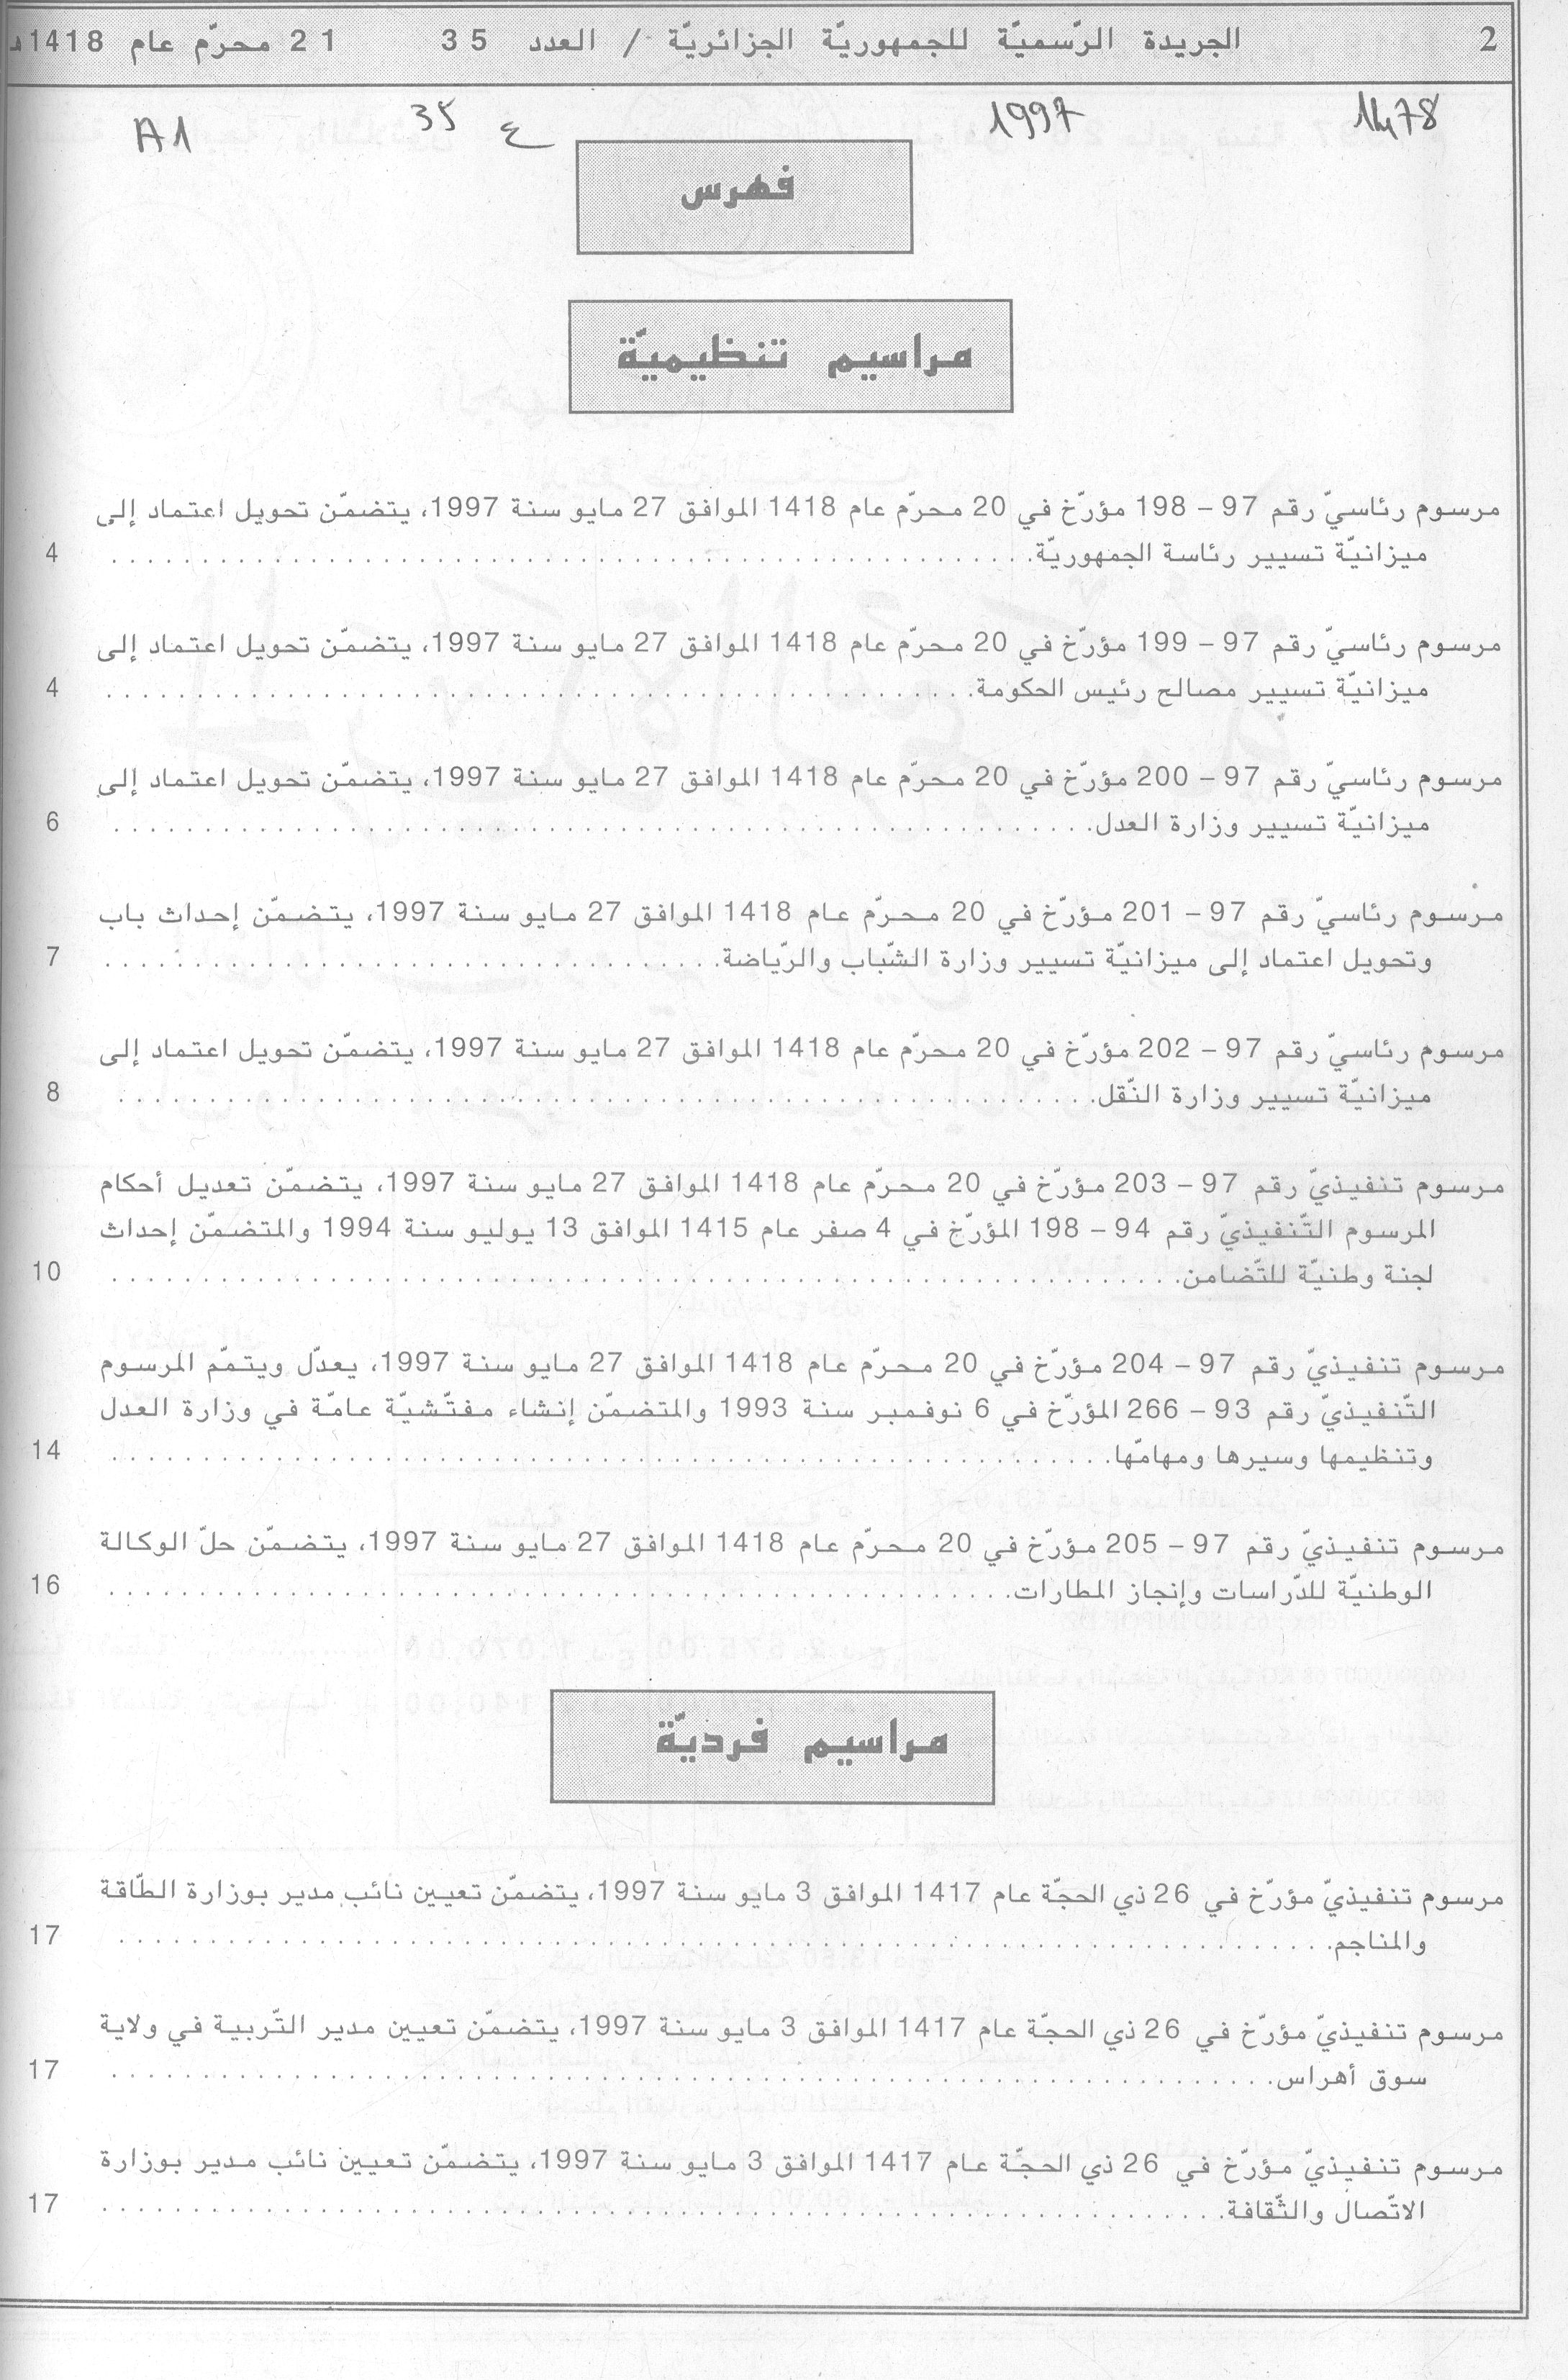 2 الجريدة الرّسميّة للجمهوريّة الجزائريّة / العدد 35 21 محرّم عام 1418هـ
1478 1997 ع 35 A1
فهرس
مراسيم تنظيميّة
مرسوم رئاسيّ رقم 97 – 198 مؤرّخ في 20 محرّم عام 1418 الموافق 27 مايو سنة 1997، يتضمّن تحويل اعتماد إلى
ميزانيّة تسيير رئاسة الجمهوريّة. . . . . . . . . . . . . . . . . . . . 4
مرسوم رئاسيّ رقم 97 – 199 مؤرّخ في 20 محرّم عام 1418 الموافق 27 مايو سنة 1997، يتضمّن تحويل اعتماد إلى
ميزانيّة تسيير مصالح رئيس الحكومة. . . . . . . . . . . . . . . . . . . . 4
مرسوم رئاسيّ رقم 97 – 200 مؤرّخ في 20 محرّم عام 1418 الموافق 27 مايو سنة 1997، يتضمّن تحويل اعتماد إلى
ميزانيّة تسيير وزارة العدل. . . . . . . . . . . . . . . . . . . . 6
مرسوم رئاسيّ رقم 97 – 201 مؤرّخ في 20 محرّم عام 1418 الموافق 27 مايو سنة 1997، يتضمّن إحداث باب
وتحويل اعتماد إلى ميزانيّة تسيير وزارة الشّباب والرّياضة. . . . . . . . . . . . . . . . . . . . 7
مرسوم رئاسيّ رقم 97 – 202 مؤرّخ في 20 محرّم عام 1418 الموافق 27 مايو سنة 1997، يتضمّن تحويل اعتماد إلى
ميزانيّة تسيير وزارة النّقل. . . . . . . . . . . . . . . . . . . . 8
مرسوم تنفيذيّ رقم 97 – 203 مؤرّخ في 20 محرّم عام 1418 الموافق 27 مايو سنة 1997، يتضمّن تعديل أحكام
المرسوم التّنفيذيّ رقم 94 – 198 المؤرّخ في 4 صفر عام 1415 الموافق 13 يوليو سنة 1994 والمتضمّن إحداث
لجنة وطنيّة للتّضامن. . . . . . . . . . . . . . . . . . . . 10
مرسوم تنفيذيّ رقم 97 – 204 مؤرّخ في 20 محرّم عام 1418 الموافق 27 مايو سنة 1997، يعدّل ويتمّم المرسوم
التّنفيذيّ رقم 93 – 266 المؤرّخ في 6 نوفمبر سنة 1993 والمتضمّن إنشاء مفتّشيّة عامّة في وزارة العدل
وتنظيمها وسيرها ومهامّها. . . . . . . . . . . . . . . . . . . . 14
مرسوم تنفيذيّ رقم 97 – 205 مؤرّخ في 20 محرّم عام 1418 الموافق 27 مايو سنة 1997، يتضمّن حلّ الوكالة
الوطنيّة للدّراسات وإنجاز المطارات. . . . . . . . . . . . . . . . . . . . 16
مراسيم فرديّة
مرسوم تنفيذيّ مؤرّخ في 26 ذي الحجّة عام 1417 الموافق 3 مايو سنة 1997، يتضمّن تعيين نائب مدير بوزارة الطّاقة
والمناجم. . . . . . . . . . . . . . . . . . . . 17
مرسوم تنفيذيّ مؤرّخ في 26 ذي الحجّة عام 1417 الموافق 3 مايو سنة 1997، يتضمّن تعيين مدير التّربية في ولاية
سوق أهراس. . . . . . . . . . . . . . . . . . . . 17
مرسوم تنفيذيّ مؤرّخ في 26 ذي الحجّة عام 1417 الموافق 3 مايو سنة 1997، يتضمّن تعيين نائب مدير بوزارة
الاتّصال والثّقافة. . . . . . . . . . . . . . . . . . . . 17